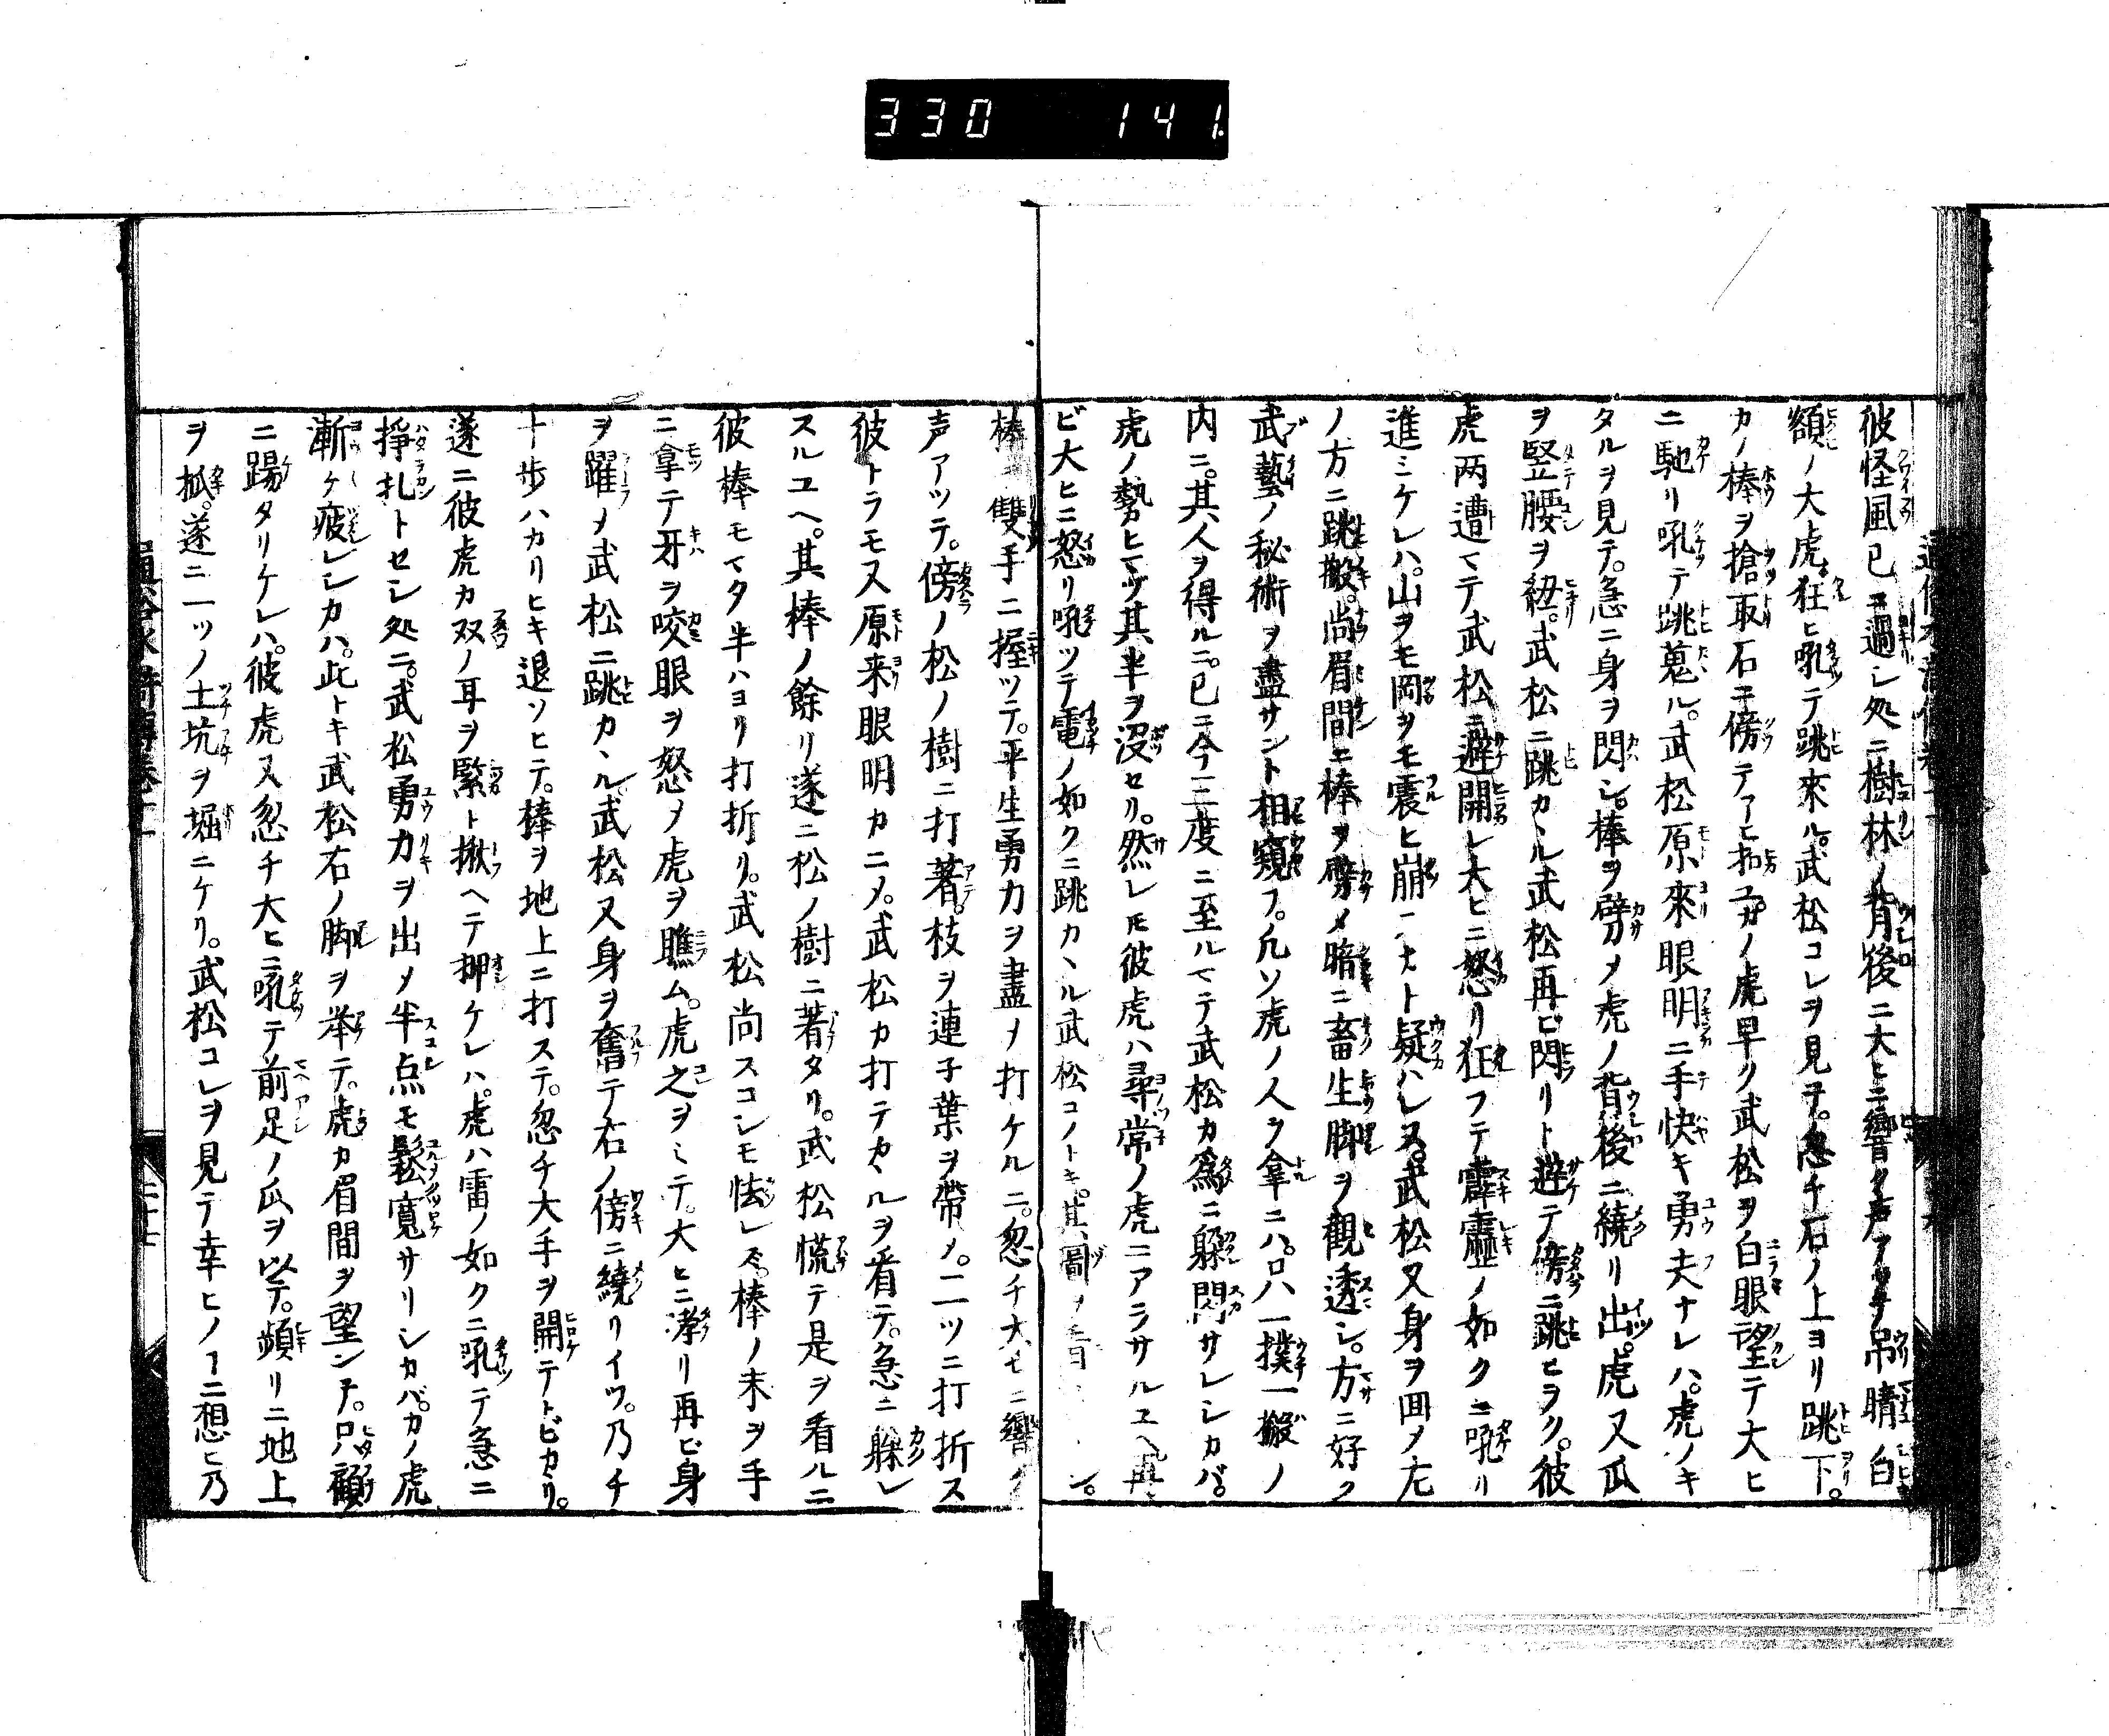 330 141.
彼怪風已ニ過シ処ニ樹林ノ背後ニ大ヒニ響ク声アツテ吊睛白
額ノ大虎狂ヒ吼テ跳來ル。武松コレヲ見テ。忽チ石ノ上ヨリ跳下。
カノ棒ヲ搶取石ニ傍テアヒ
カノ虎早ク武松ヲ白眼望テ大ヒ
ニ馳リ吼テ跳蒐ル。武松原來眼明ニ手快キ勇夫ナレハ。虎ノキ
タルヲ見テ。急ニ身ヲ閃シ。棒ヲ劈メ虎ノ背後ニ繞リ出。虎又爪
ヲ竪腰ヲ紐。武松ニ跳カヽル武松再ビ閃リト避テ傍ニ跳ヒラク。彼
虎两遭マテ武松ニ避開レ大ヒニ怒リ狂フテ霹靂ノ如クニ吼リ
進ミケレハ。山ヲモ岡ヲモ震ヒ崩
ト疑ハレヌ。武松又身ヲ囬メ左
ノ方ニ跳搬。尚眉間ニ棒ヲ劈メ暗ニ畜生脚ヲ觀透シ。方ニ好ク
武藝ノ秘術ヲ盡サント相窺フ。凡ソ虎ノ人ヲ拿ニハ。只一撲一搬ノ
内ニ。其人ヲ得ルニ。已ニ今三度ニ至ルマテ武松カ爲ニ躱閃サレシカバ。
虎ノ勢ヒマヅ其半ヲ没セリ。然レモ彼虎ハ尋常ノ虎ニアラサルユヘ再
ビ大ヒニ怒リ吼ツテ電ノ如クニ跳カヽル武松コノトキ。其圖
棒雙手ニ握ツテ。平生勇力ヲ盡メ打ケルニ。忽チ大ヒニ響ク
声アツテ。傍ノ松ノ樹ニ打著。枝ヲ連子葉ヲ帶メ。二ツニ打折ス
彼トラモ又原来眼明カニメ。武松カ打テカヽルヲ看テ。急ニ躱レ
スルユヘ。其棒ノ餘リ遂ニ松ノ樹ニ著タリ。武松慌テ是ヲ看ルニ
彼棒モマタ半ハヨリ打折リ。武松尚スコシモ怯レズ。棒ノ末ヲ手
ニ拿テ牙ヲ咬眼ヲ怒メ虎ヲ瞧ム。虎之ヲミテ。大ヒニ哮リ再ビ身
ヲ躍メ武松ニ跳カヽル武松又身ヲ奮テ右ノ傍ニ繞リイツ。乃チ
十歩ハカリヒキ退ソヒテ。棒ヲ地上ニ打ステ。忽チ大手ヲ開テトビカヽリ。
遂ニ彼虎カ双ノ耳ヲ緊ト揪ヘテ押ケレハ。虎ハ雷ノ如クニ吼テ急ニ
掙扎トセシ処ニ。武松勇力ヲ出メ半点モ鬆寛サリシカバ。カノ虎
漸々疲レシカハ。此トキ武松右ノ脚ヲ举テ。虎カ眉間ヲ望ンテ。只顧
ニ踢タリケレハ。彼虎又忽チ大ヒニ吼テ前足ノ爪ヲ以テ。頻リニ地上
ヲ抓。遂ニ一ツノ土坑ヲ堀ニケリ。武松コレヲ見テ幸ヒノヿニ想ヒ乃